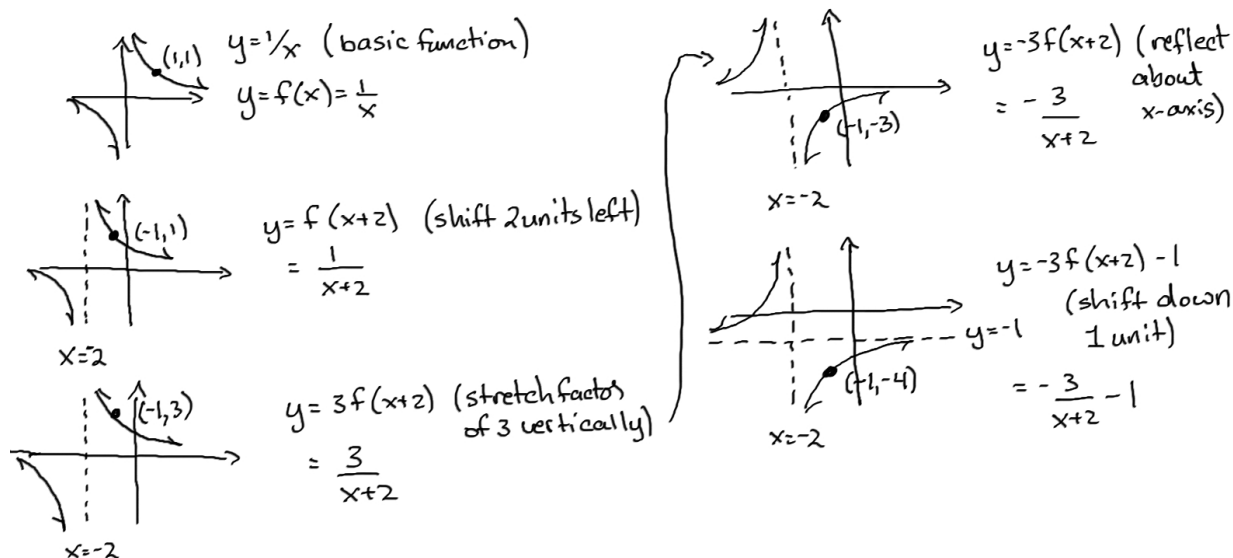 (1,1)
y=1/x (basic function)
y=f(x)=1/x
(-1,1)
y=f(x+2) (shift 2 units left)
= 1/(x+2)
x=-2
(-1,3)
y=3f(x+2) (stretch factor
of 3 vertically)
= 3/(x+2)
x=-2
y=-3f(x+2) (reflect
about
x-axis)
= -3/(x+2)
(-1,-3)
x=-2
y=-3f(x+2)-1
(shift down
1 unit)
y=-1
(-1,-4)
= -3/(x+2) -1
x=-2